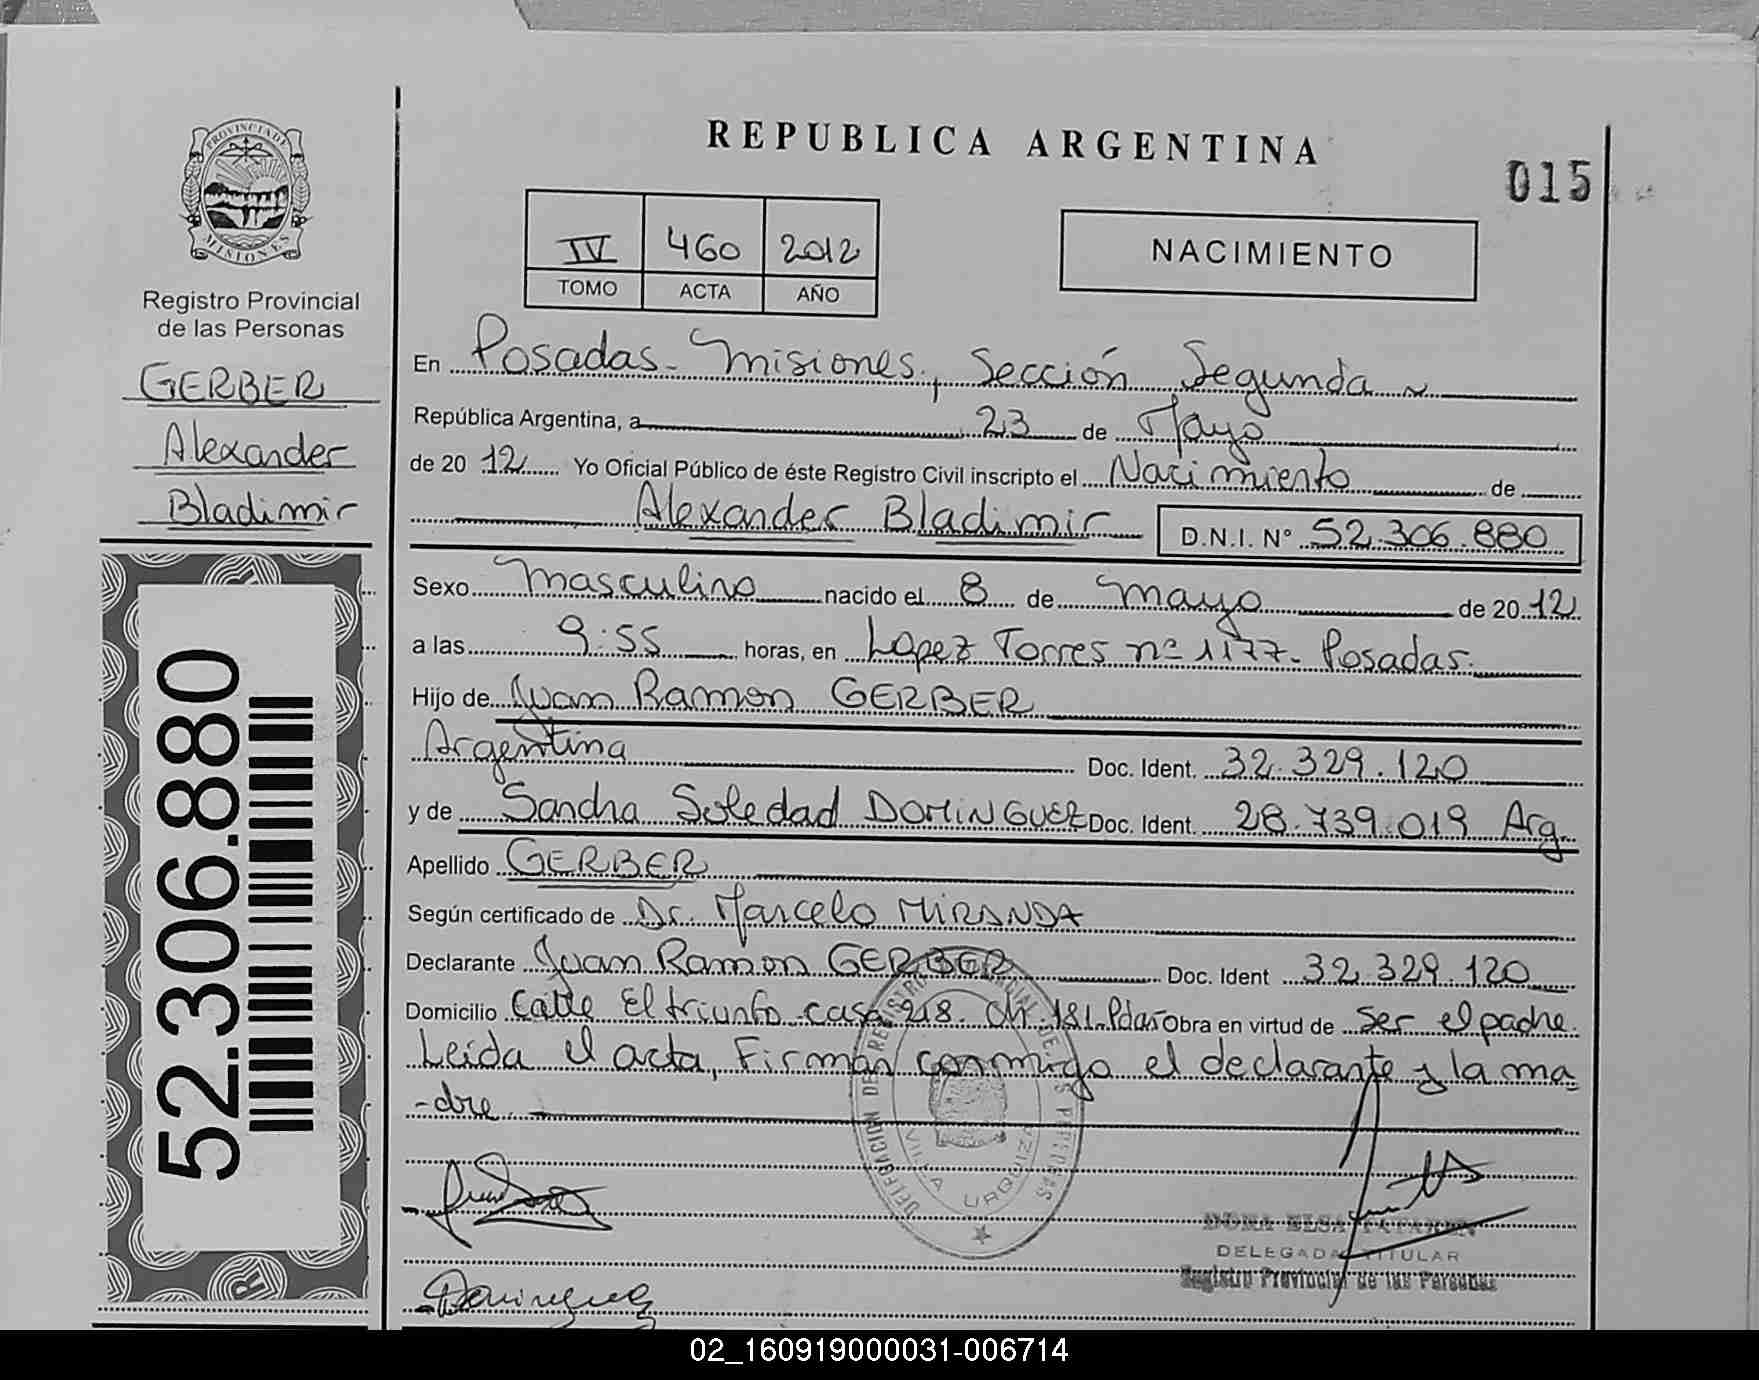 REPUBLICA ARGENTINA
015
PROVINCIA DE MISIONES
Registro Provincial
de las Personas
GERBER
Alexander
Bladimir
52.306.880
IV 460 2012
TOMO ACTA AÑO
NACIMIENTO
En Posadas - Misiones, Sección Segunda
República Argentina, a 23 de Mayo
de 2012 Yo Oficial Público de éste Registro Civil inscripto el Nacimiento de
Alexander Bladimir D.N.I. N° 52.306.880
Sexo masculino nacido el 8 de mayo de 2012
a las 9:55 horas, en Lopez Torres nº 1177 - Posadas.
Hijo de Juan Ramon GERBER
Argentina Doc. Ident. 32.329.120
y de Sandra Soledad DOMINGUEZ Doc. Ident. 28.739.019 Arg.
Apellido GERBER
Según certificado de Dr. Marcelo MIRANDA
Declarante Juan Ramon GERBER Doc. Ident 32.329.120
Domicilio Calle El triunfo casa 218. Ch. 181-Pdas Obra en virtud de ser el padre.
Leida el acta, Firman conmigo el declarante y la ma-
-dre.
DELEGACION DEL REGISTRO PROVINCIAL DE LAS PERSONAS
VILLA URQUIZA
DELEGADA TITULAR
Registro Provincial de las Personas
Dominguez
02_160919000031-006714